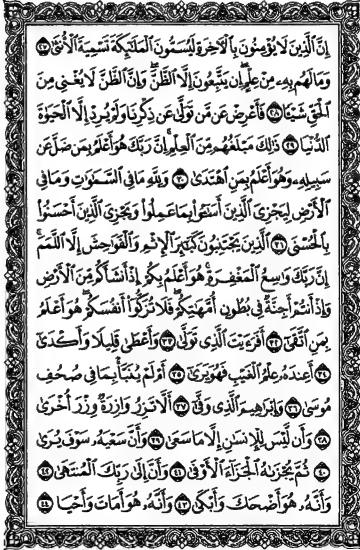 إِنَّ الَّذِينَ لَا يُؤْمِنُونَ بِالْآخِرَةِ لَيُسَمُّونَ الْمَلَائِكَةَ تَسْمِيَةَ الْأُنْثَى ٢٧
وَمَا لَهُمْ بِهِ مِنْ عِلْمٍ إِنْ يَتَّبِعُونَ إِلَّا الظَّنَّ وَإِنَّ الظَّنَّ لَا يُغْنِي مِنَ
الْحَقِّ شَيْئًا ٢٨ فَأَعْرِضْ عَنْ مَنْ تَوَلَّى عَنْ ذِكْرِنَا وَلَمْ يُرِدْ إِلَّا الْحَيَاةَ
الدُّنْيَا ٢٩ ذَلِكَ مَبْلَغُهُمْ مِنَ الْعِلْمِ إِنَّ رَبَّكَ هُوَ أَعْلَمُ بِمَنْ ضَلَّ عَنْ
سَبِيلِهِ وَهُوَ أَعْلَمُ بِمَنِ اهْتَدَى ٣٠ وَلِلَّهِ مَا فِي السَّمَاوَاتِ وَمَا فِي
الْأَرْضِ لِيَجْزِيَ الَّذِينَ أَسَاءُوا بِمَا عَمِلُوا وَيَجْزِيَ الَّذِينَ أَحْسَنُوا
بِالْحُسْنَى ٣١ الَّذِينَ يَجْتَنِبُونَ كَبَائِرَ الْإِثْمِ وَالْفَوَاحِشَ إِلَّا اللَّمَمَ
إِنَّ رَبَّكَ وَاسِعُ الْمَغْفِرَةِ هُوَ أَعْلَمُ بِكُمْ إِذْ أَنْشَأَكُمْ مِنَ الْأَرْضِ
وَإِذْ أَنْتُمْ أَجِنَّةٌ فِي بُطُونِ أُمَّهَاتِكُمْ فَلَا تُزَكُّوا أَنْفُسَكُمْ هُوَ أَعْلَمُ
بِمَنِ اتَّقَى ٣٢ أَفَرَأَيْتَ الَّذِي تَوَلَّى ٣٣ وَأَعْطَى قَلِيلًا وَأَكْدَى
٣٤ أَعِنْدَهُ عِلْمُ الْغَيْبِ فَهُوَ يَرَى ٣٥ أَمْ لَمْ يُنَبَّأْ بِمَا فِي صُحُفِ
مُوسَى ٣٦ وَإِبْرَاهِيمَ الَّذِي وَفَّى ٣٧ أَلَّا تَزِرُ وَازِرَةٌ وِزْرَ أُخْرَى
٣٨ وَأَنْ لَيْسَ لِلْإِنْسَانِ إِلَّا مَا سَعَى ٣٩ وَأَنَّ سَعْيَهُ سَوْفَ يُرَى
٤٠ ثُمَّ يُجْزَاهُ الْجَزَاءَ الْأَوْفَى ٤١ وَأَنَّ إِلَى رَبِّكَ الْمُنْتَهَى ٤٢
وَأَنَّهُ هُوَ أَضْحَكَ وَأَبْكَى ٤٣ وَأَنَّهُ هُوَ أَمَاتَ وَأَحْيَا ٤٤